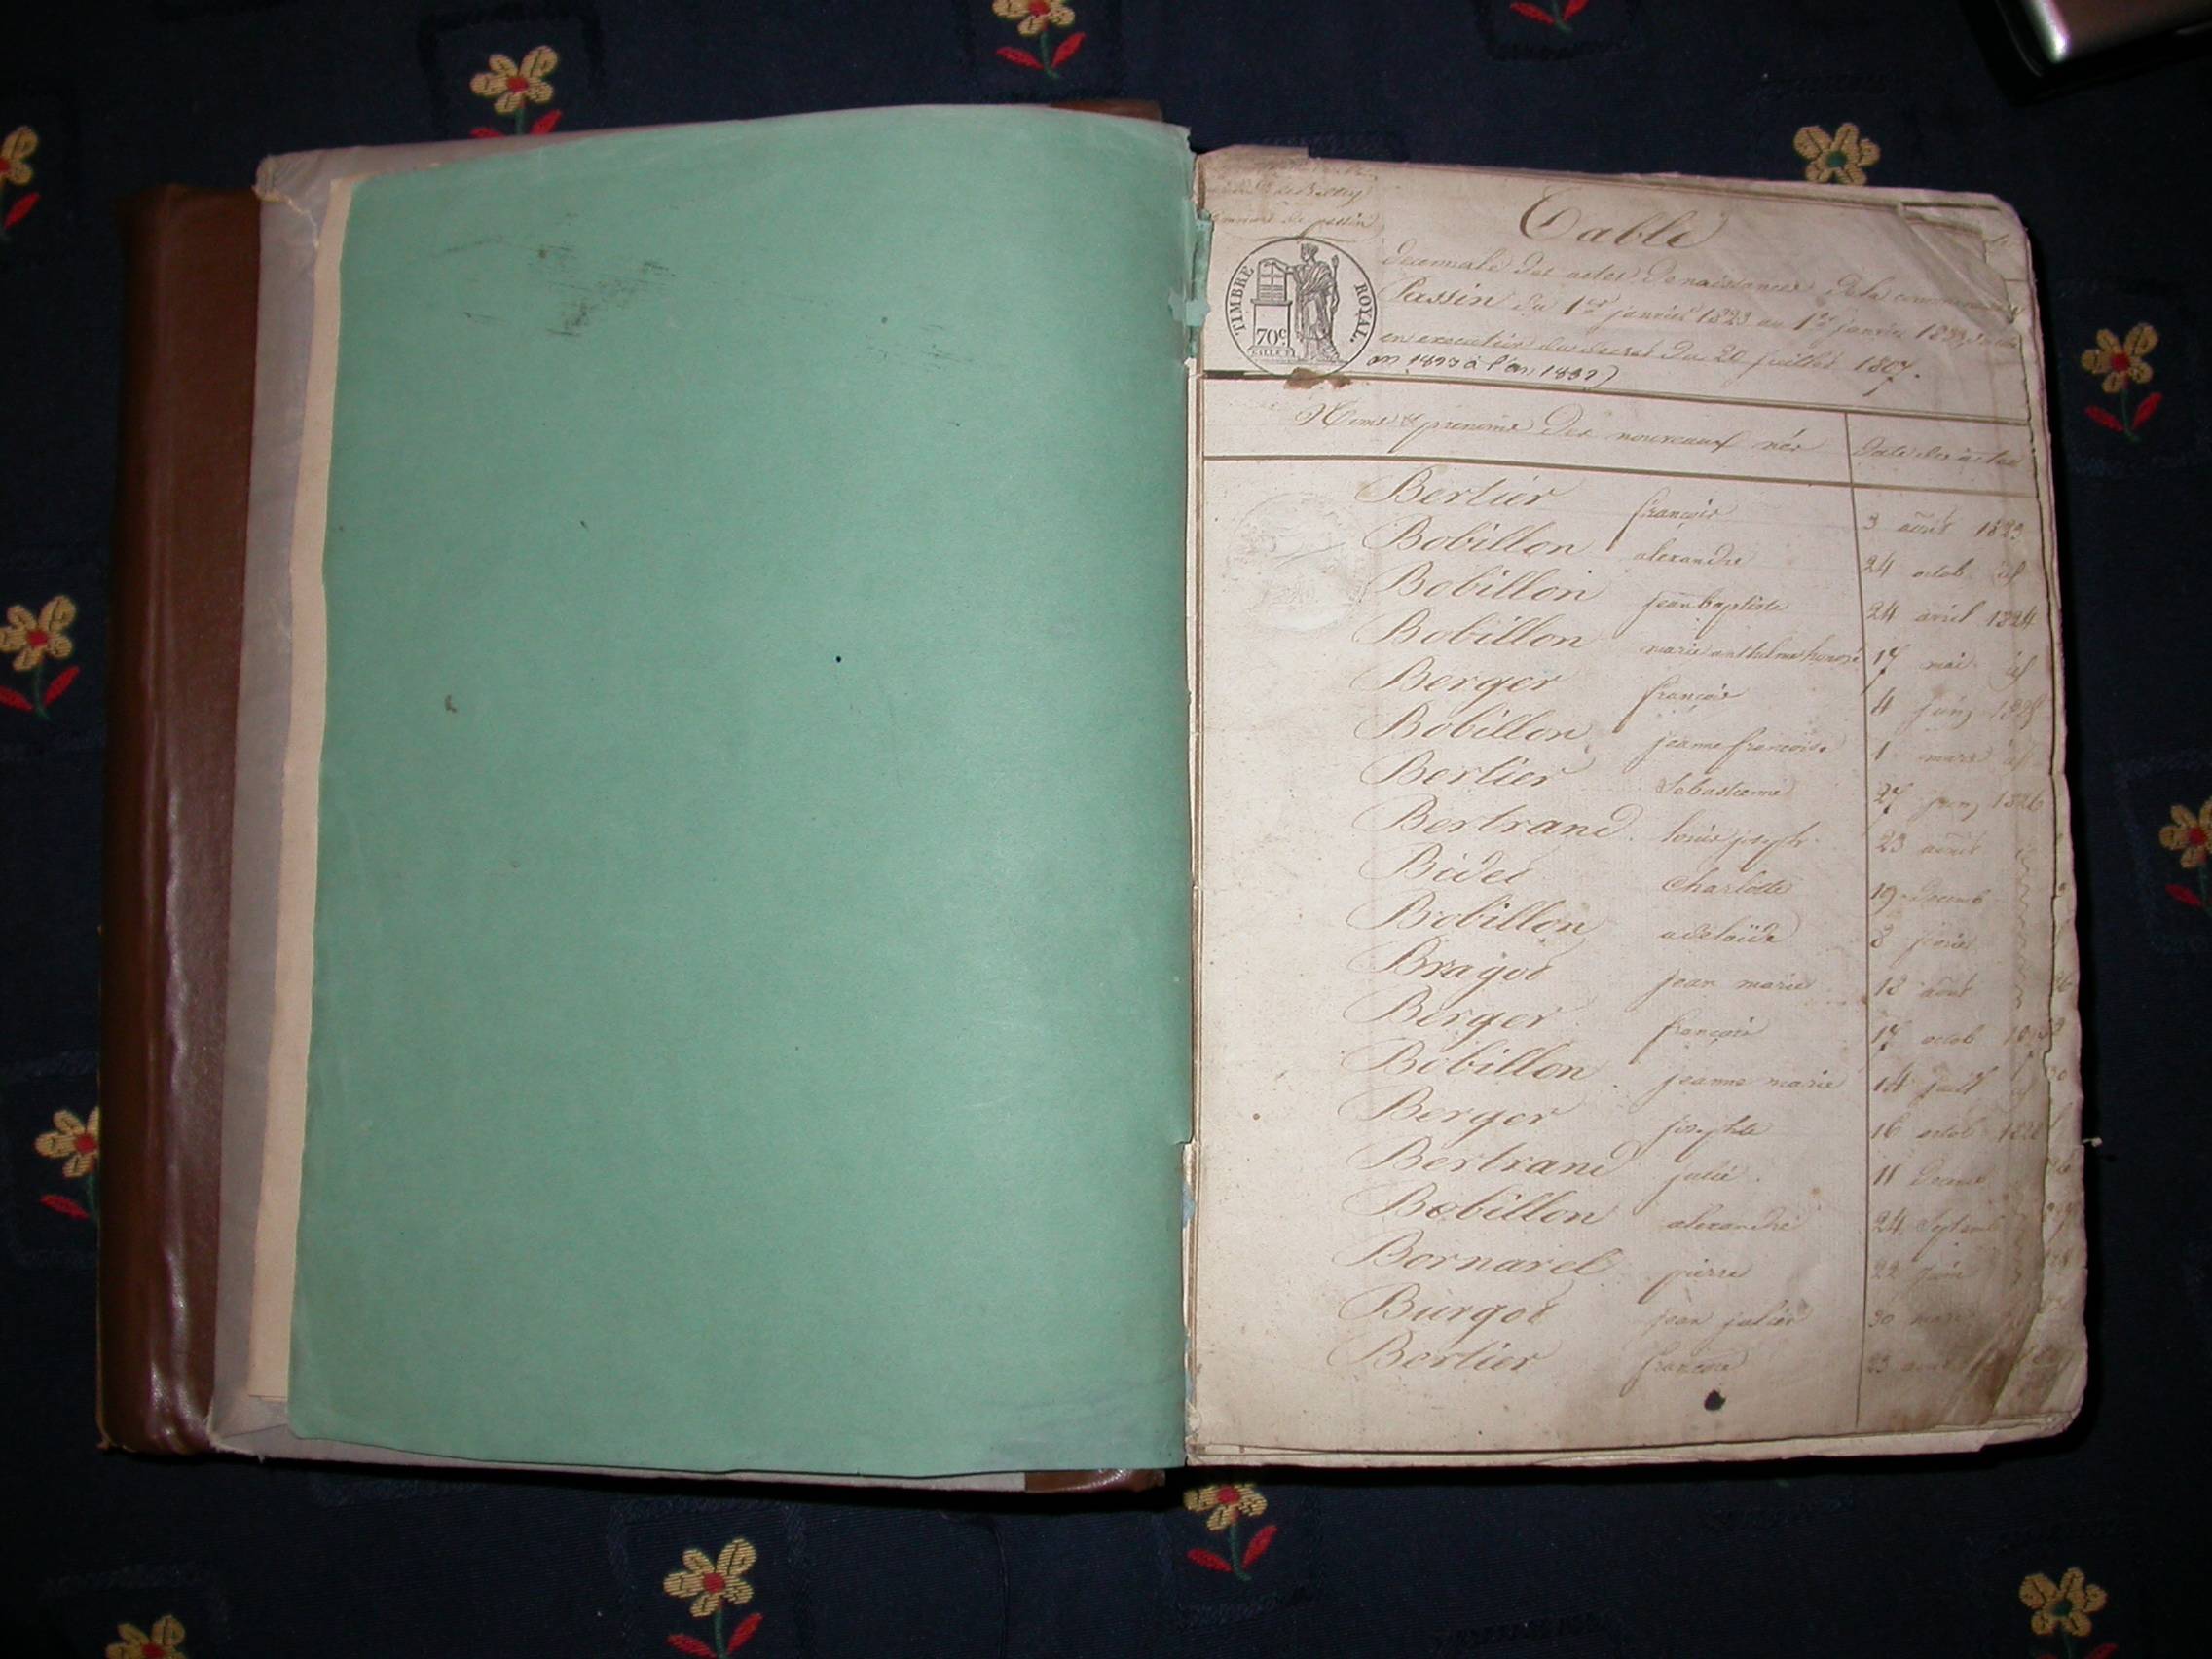 de Belley
Table
TIMBRE ROYAL.
70c
décennale des actes de naissances de la commune
Passin du 1er janvier 1823 au 1er janvier 1833
en execution du decret du 20 juillet 1807.
an 1823 à l'an 1832)
Noms & prenoms des nouveaux nés Date des actes
Bertier françois 3 août 1823
Bobillon alexandre 24 octob id
Bobillon jean baptiste 24 avril 1824
Bobillon marie anthelme honoré 17 mai id
Berger françois 4 janv
Bobillon jeanne françoise 1 mars id
Bertier Sebastienne 27 janv 1826
Bertrand louis joseph 23 avril
Bidet Charlotte 19 Decemb
Bobillon adelaïde 8 fevrier
Bragot jean marie 18 août
Berger françois 17 octob
Bobillon jeanne marie 14 juill id
Berger josephte 16 octob 1828
Bertrand julie 11
Bobillon alexandre 24 Septemb
Bornarel pierre 22 juin
Burgot jean julien 30 mars
Bertier françois 23